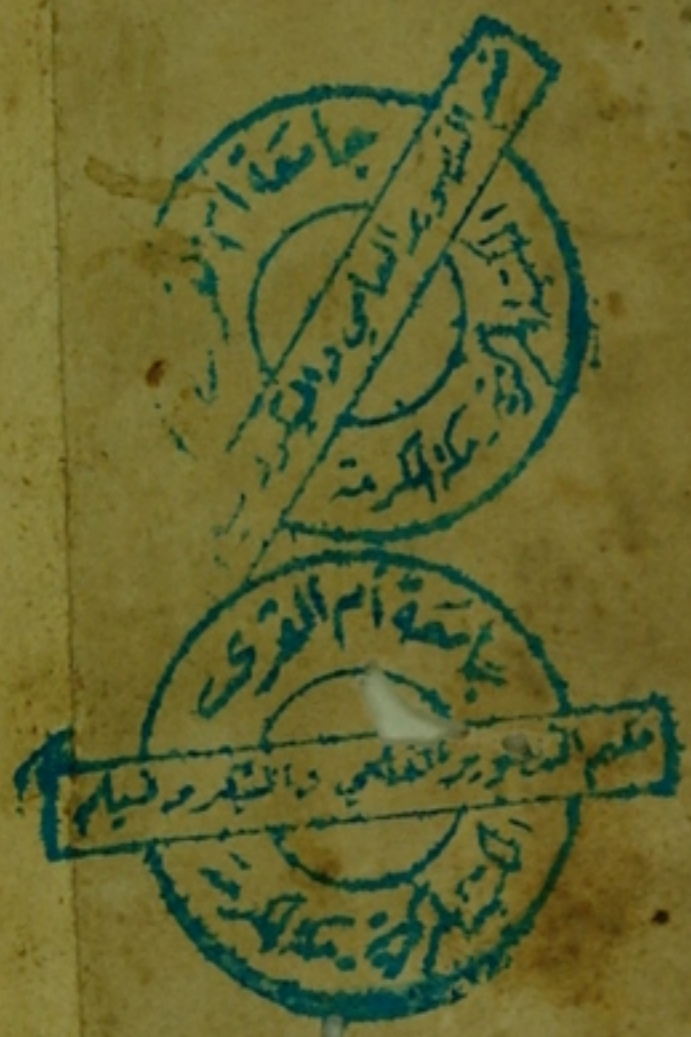 جامعة أم القرى
قسم التصوير العلمي والميكروفيلم
المكتبة المركزية - مكة المكرمة
جامعة أم القرى
قسم التصوير العلمي والميكروفيلم
المكتبة المركزية - مكة المكرمة